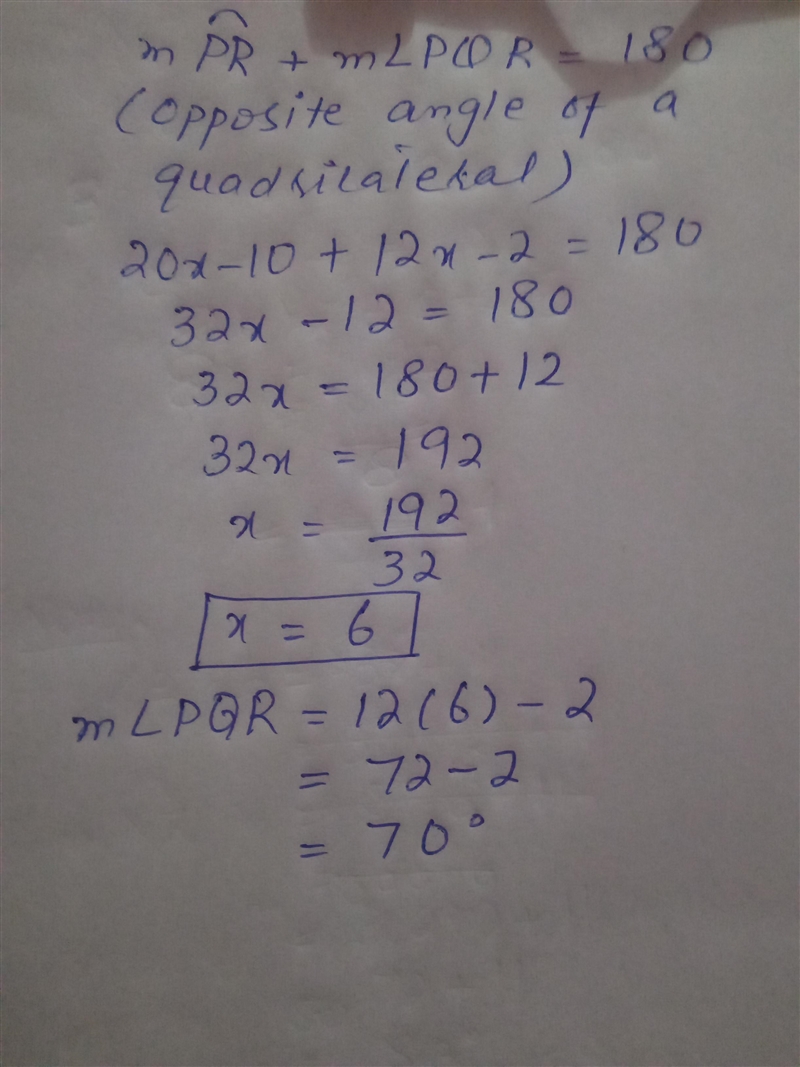 m P͡R + m∠PQR = 180
(opposite angle of a
quadrilateral)
20x-10 + 12x-2 = 180
32x - 12 = 180
32x = 180+12
32x = 192
x = 192/32
x = 6
m∠PQR = 12(6) - 2
= 72-2
= 70°